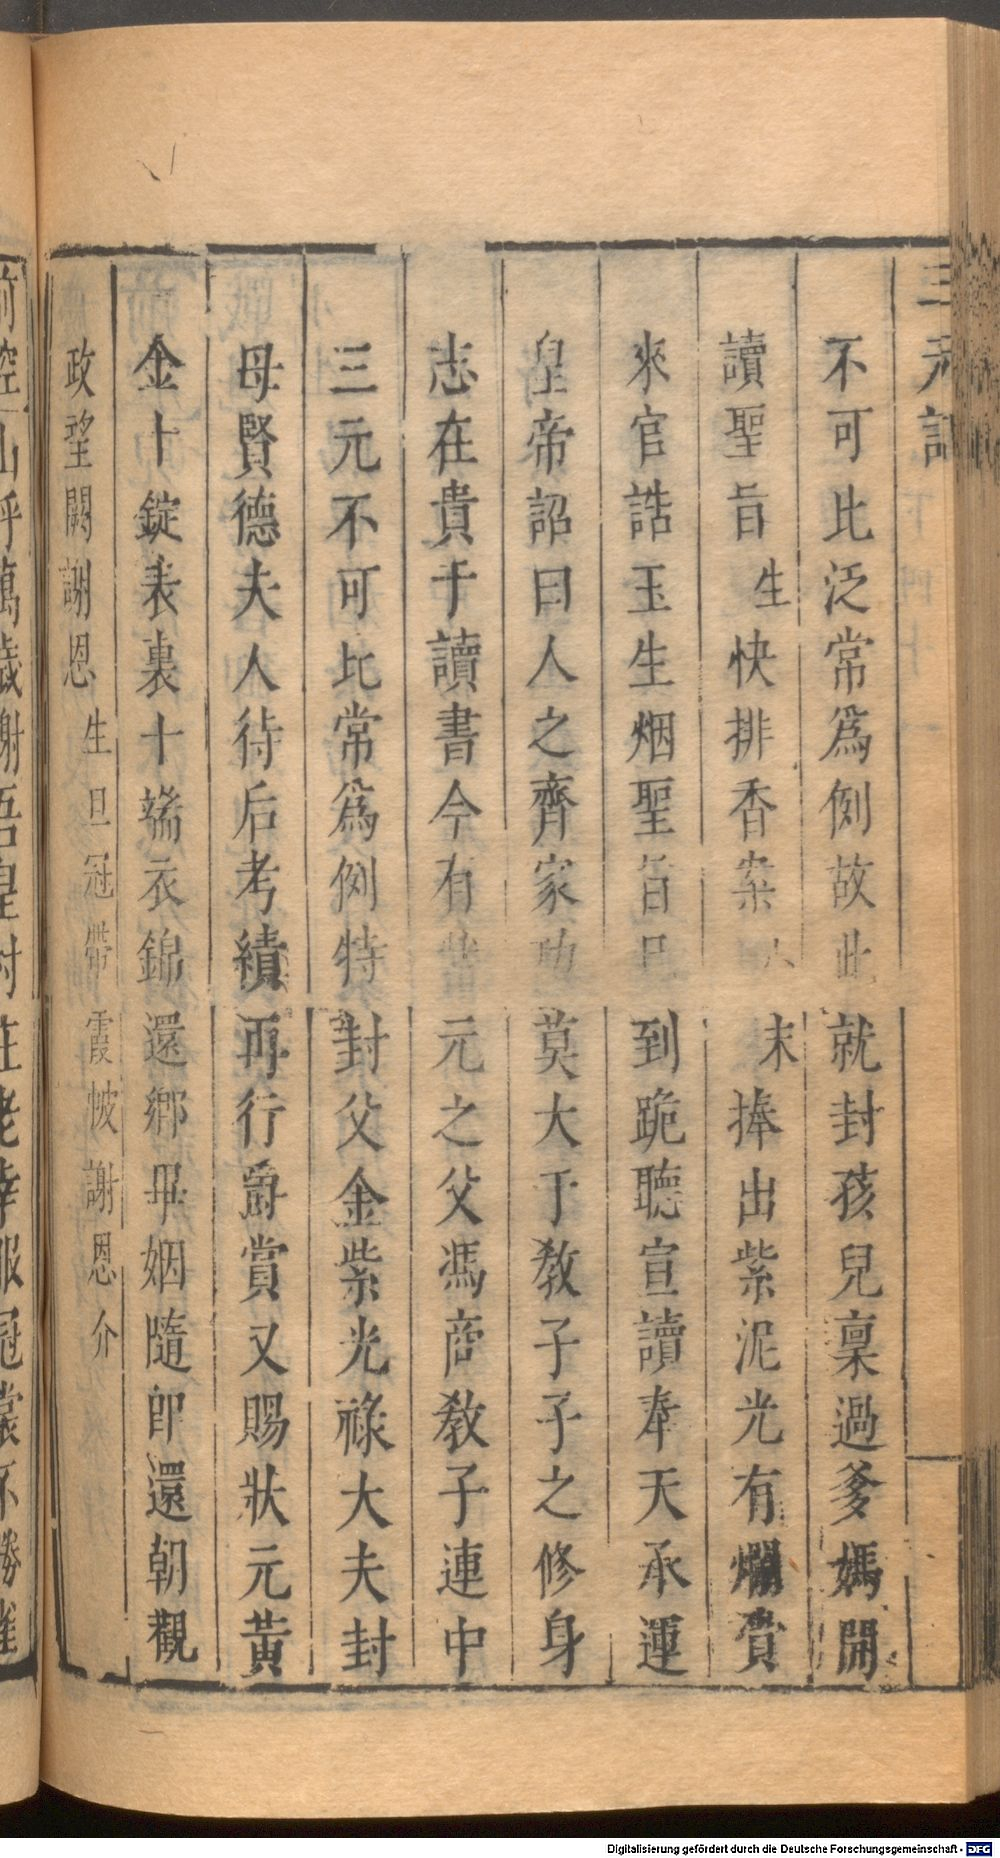 三元記
不可比泛常爲例故此就封孩兒禀過爹媽開
讀聖旨 生 快排香案 末 捧出紫泥光有爛賫
來官誥玉生烟聖旨已到跪聽宣讀奉天承運
皇帝詔曰人之齊家功莫大于教子子之修身
志在貴于讀書今有 元之父馮商教子連中
三元不可比常爲例特封父金紫光祿大夫封
母賢德夫人待后考績再行爵賞又賜狀元黃
金十錠表裏十端衣錦還鄉毕姻隨即還朝觀
政望闕謝恩 生旦冠帶霞帔謝恩介
前 山呼萬歲謝吾皇封 老幸服冠裳不勝
Digitalisierung gefördert durch die Deutsche Forschungsgemeinschaft - DFG